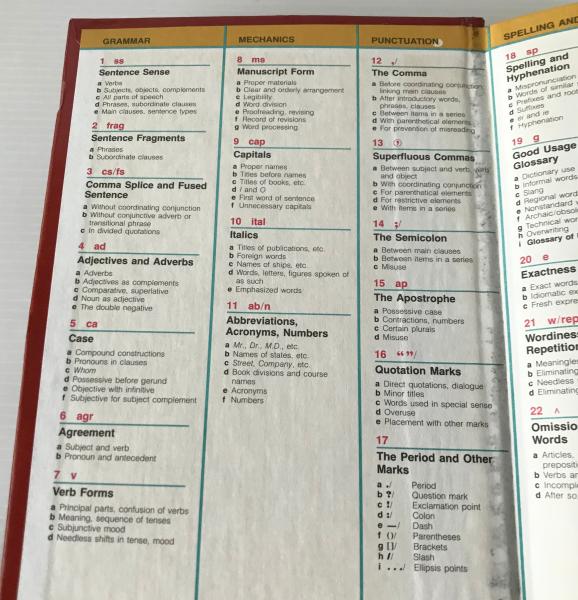 GRAMMAR
1 ss
Sentence Sense
a Verbs
b Subjects, objects, complements
c All parts of speech
d Phrases, subordinate clauses
e Main clauses, sentence types
2 frag
Sentence Fragments
a Phrases
b Subordinate clauses
3 cs/fs
Comma Splice and Fused
Sentence
a Without coordinating conjunction
b Without conjunctive adverb or
transitional phrase
c In divided quotations
4 ad
Adjectives and Adverbs
a Adverbs
b Adjectives as complements
c Comparative, superlative
d Noun as adjective
e The double negative
5 ca
Case
a Compound constructions
b Pronouns in clauses
c Whom
d Possessive before gerund
e Objective with infinitive
f Subjective for subject complement
6 agr
Agreement
a Subject and verb
b Pronoun and antecedent
7 v
Verb Forms
a Principal parts, confusion of verbs
b Meaning, sequence of tenses
c Subjunctive mood
d Needless shifts in tense, mood
MECHANICS
8 ms
Manuscript Form
a Proper materials
b Clear and orderly arrangement
c Legibility
d Word division
e Proofreading, revising
f Record of revisions
g Word processing
9 cap
Capitals
a Proper names
b Titles before names
c Titles of books, etc.
d I and O
e First word of sentence
f Unnecessary capitals
10 ital
Italics
a Titles of publications, etc.
b Foreign words
c Names of ships, etc.
d Words, letters, figures spoken of
as such
e Emphasized words
11 ab/n
Abbreviations,
Acronyms, Numbers
a Mr., Dr., M.D., etc.
b Names of states, etc.
c Street, Company, etc.
d Book divisions and course
names
e Acronyms
f Numbers
PUNCTUATION
12 ,/
The Comma
a Before coordinating conjunction
linking main clauses
b After introductory words,
phrases, clauses
c Between items in a series
d With parenthetical elements
e For prevention of misreading
13
Superfluous Commas
a Between subject and verb, verb
and object
b With coordinating conjunction
c For parenthetical elements
d For restrictive elements
e With items in a series
14 ;/
The Semicolon
a Between main clauses
b Between items in a series
c Misuse
15 ap
The Apostrophe
a Possessive case
b Contractions, numbers
c Certain plurals
d Misuse
16 “ ”/
Quotation Marks
a Direct quotations, dialogue
b Minor titles
c Words used in special sense
d Overuse
e Placement with other marks
17
The Period and Other
Marks
a ./ Period
b ?/ Question mark
c !/ Exclamation point
d :/ Colon
e —/ Dash
f ()/ Parentheses
g []/ Brackets
h // Slash
i . . ./ Ellipsis points
SPELLING AND
18 sp
Spelling and
Hyphenation
a Mispronunciation
b Words of similar
c Prefixes and root
d Suffixes
e ei and ie
f Hyphenation
19 g
Good Usage
Glossary
a Dictionary use
b Informal words
c Slang
d Regional word
e Nonstandard
f Archaic/obsol
g Technical wor
h Overwriting
i Glossary of
20 e
Exactness
a Exact words
b Idiomatic ex
c Fresh expre
21 w/rep
Wordiness
Repetition
a Meaningles
b Eliminating
c Needless
d Eliminating
22 ^
Omissio
Words
a Articles,
prepositi
b Verbs an
c Incomple
d After so